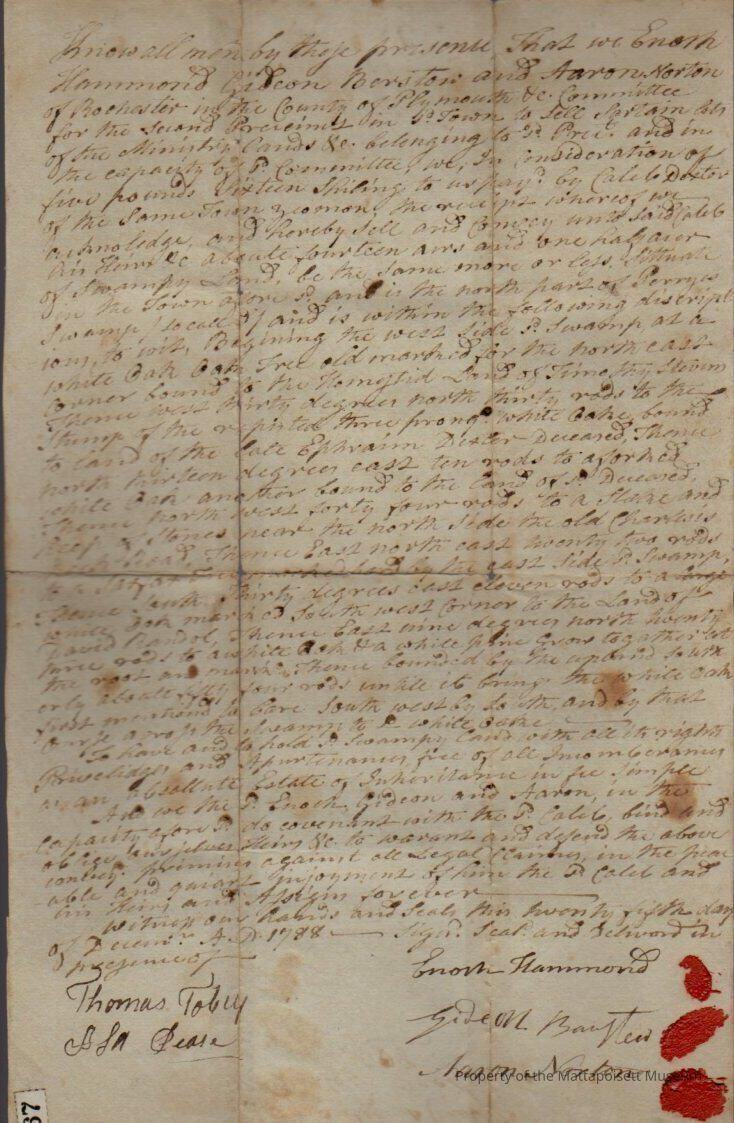 Know all men by these presents That we Enoch
Hammond Gideon Barstow and Aaron Norton
of Rochester in the County of Plymouth &c. Committee
for the Second Precinct in sd. Town to Sell Sertain
of the Ministry Lands &c. belonging to sd. Prect. and in
the capacity of sd. Committee, we, In Consideration of
five pounds Sixteen Shiling to us pay'd by Caleb Dexter
of the Same Town yeoman, the receipt whereof we
acknoledge, and hereby sell and Convey unto said Caleb
his Heirs &c aboute fourteen acrs and one half acer
of Swampy Land, be the same more or less, Sittuate
in the Town afore sd. and is the north part of Perrys
Swamp So call'd, and is within the following descript
ions, to wit, Begining the west Side sd. Swamp at a
white Oak Tree old marked for the north east
Corner bound to the Homestid Land of Timothy Stevens
Thence west thirty degrees north thirty rods to the
Stump of the three prong'd white Oake, bound
to land of the late Ephraim Dexter Deceased, Thence
north thirteen degrees east ten rods to a forked
white Oak another bound to the land of sd. Deceased,
Thence north west forty four rods to a Stake and
Heep of Stones near the north Side the old
Road, Thence East north east twenty two rods
to a Tree marked by the east Side sd. Swamp,
Thence South Thirty degrees east eleven rods to a large
white Oak mark'd South west Corner to the Land of
David Thence East nine degrees north twenty
three rods to a white Oak & a white pine Grow together at
the root and mark'd, Thence bounded by the upland South
erly aboute fifty four rods untile it brings the white Oak
first mentioned to bare South west by South, and by that
Course across the Swamp to sd. white Oake
To have and to hold sd. Swampy Land with all its rights
Priveledges and Apurtenances, free of all Incomberances
as an absollute Estate of Inheritance in fee simple
And we the sd. Enoch, Gideon and Aaron, in the
capacity afore sd. do covenant with the sd. Caleb, bind and
oblige our selves Heirs &c. to warant and defend the above
convey'd against all Legal Claimes, in the peac
able and injoyment of him the sd Caleb and
his Heirs and Assigns forever
Witness our Hands and Seals this twenty fifth day
of Decemr. A.D. 1788 Sign'd Seal'd and Deliverd in
presence of
Enoch Hammond
Thomas Tobey
Gideon Barstow
Asa Pease
Aaron Norton
Property of the Mattapoisett Museum
67